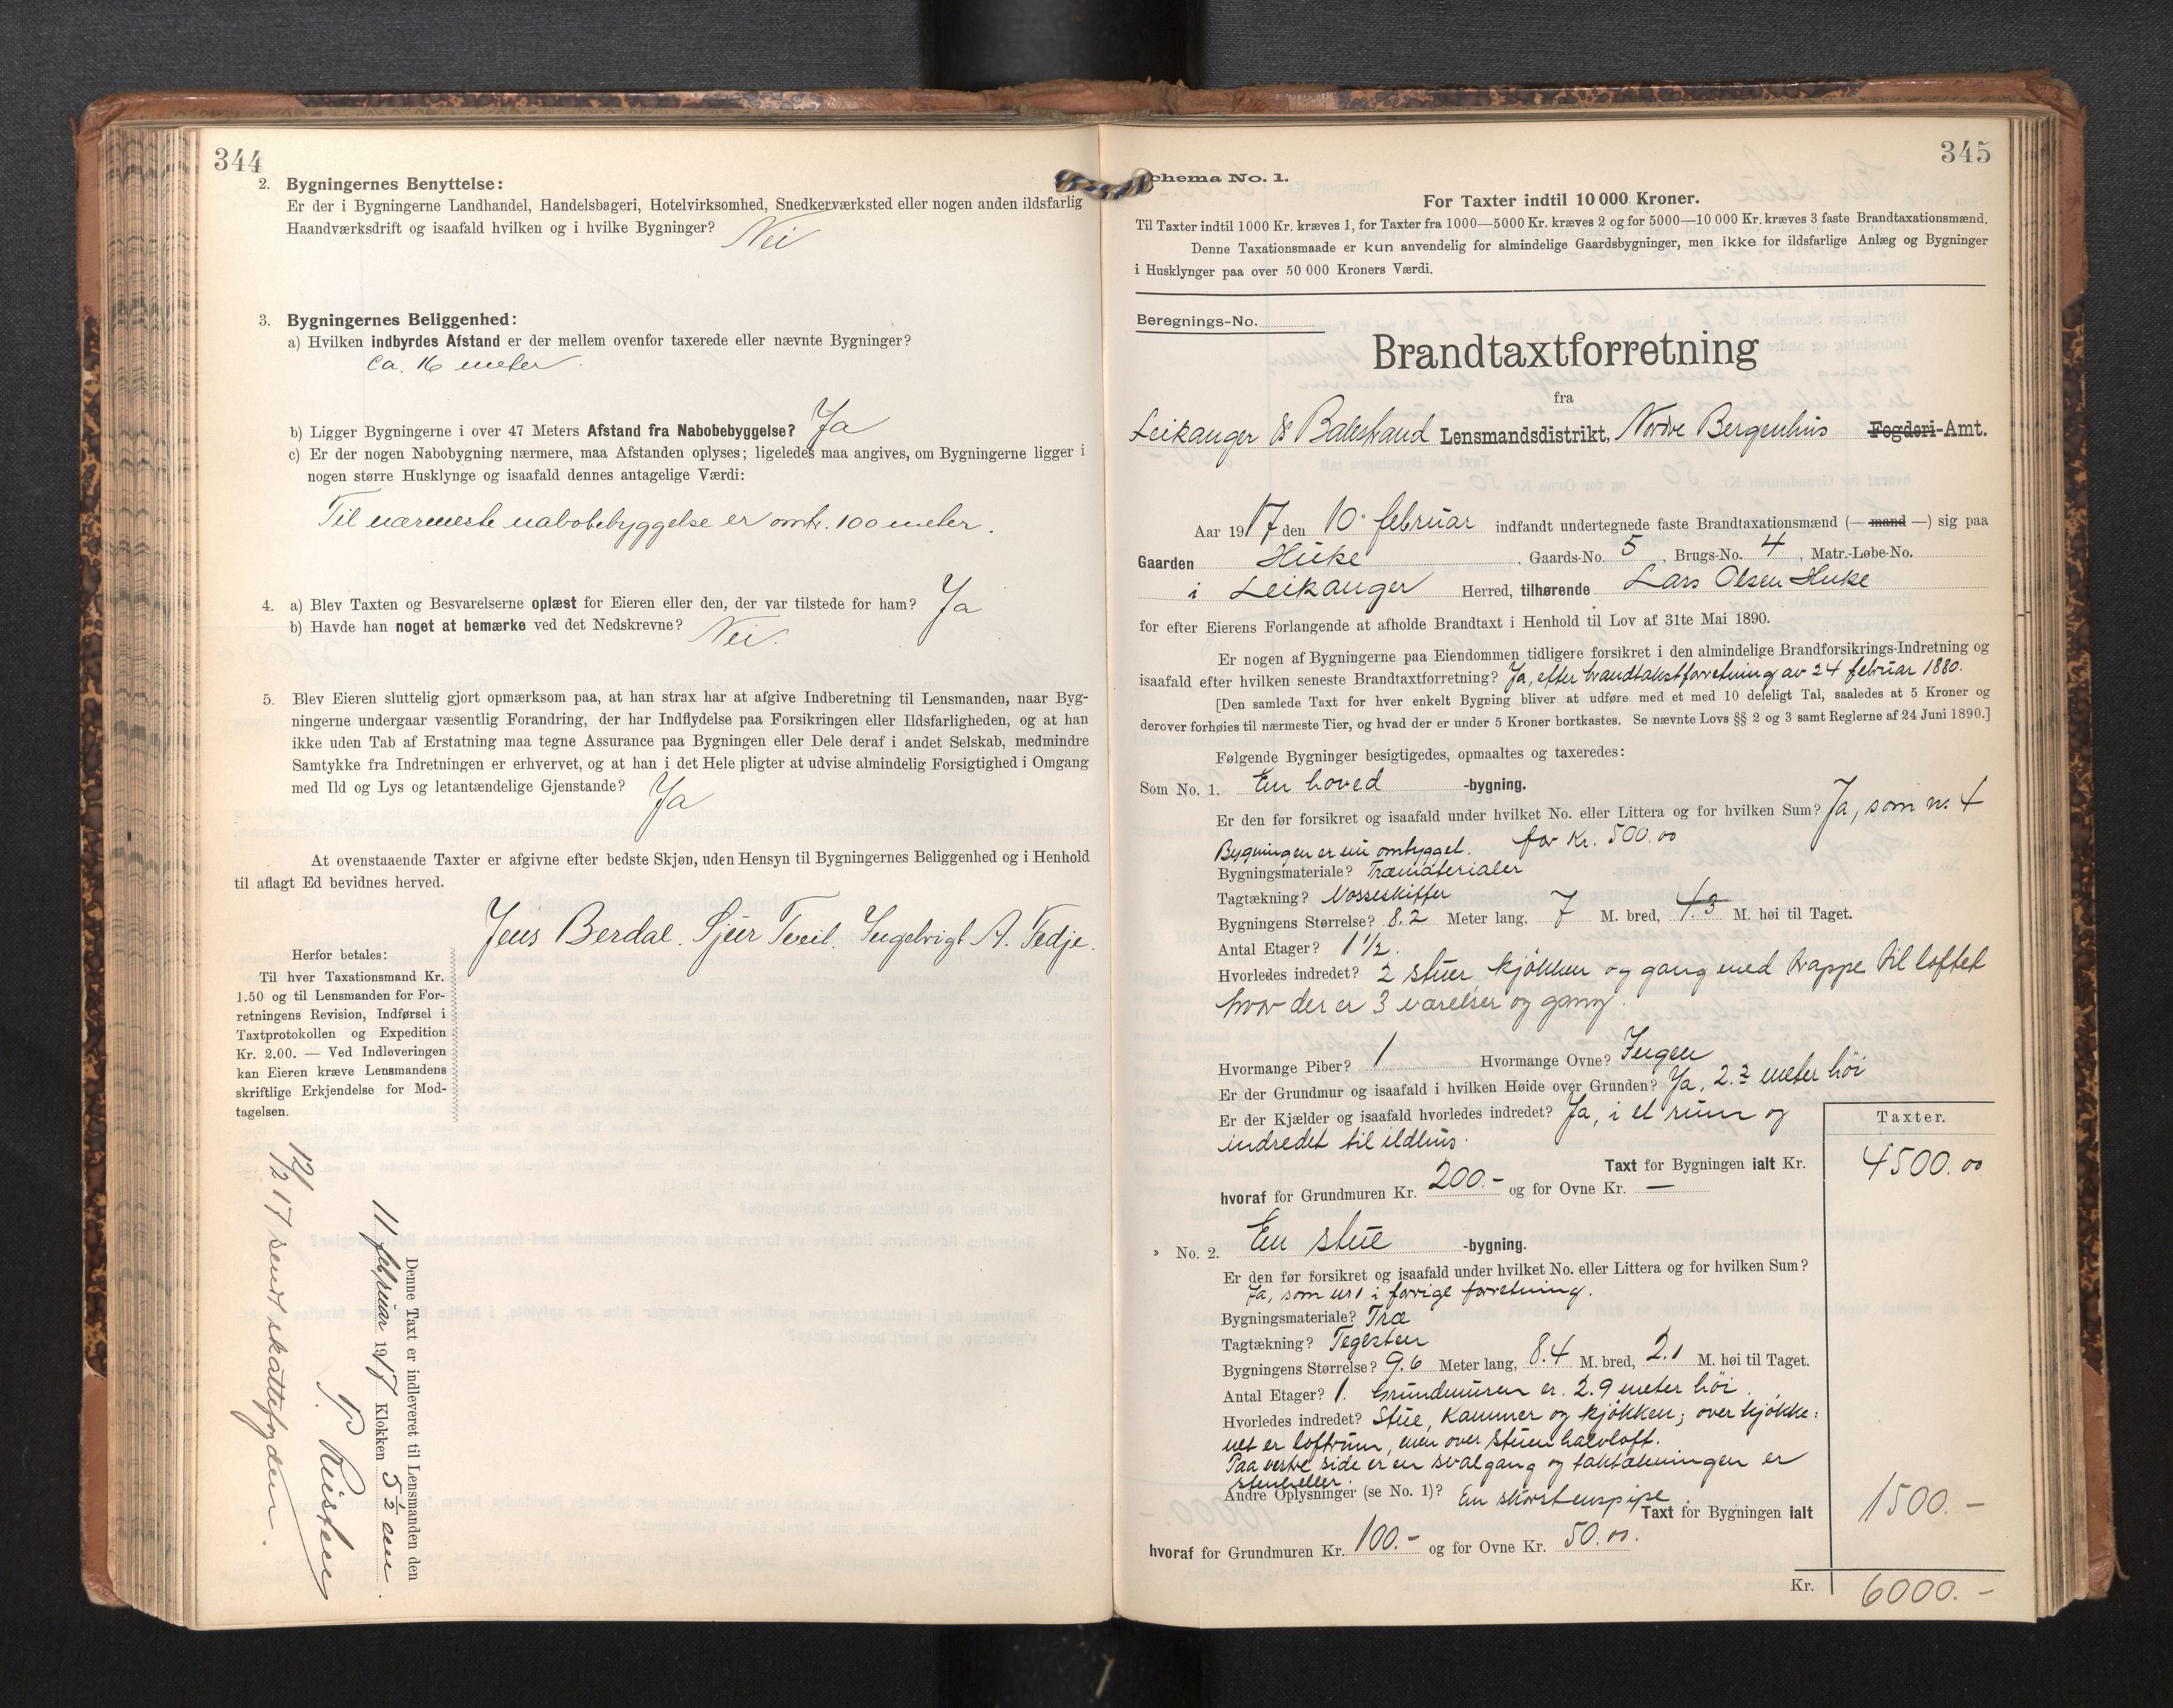 344
2. Bygningernes Benyttelse:
Er der i Bygningerne Landhandel, Handelsbageri, Hotelvirksomhed, Snedkerværksted eller nogen anden ildsfarlig
Haandværksdrift og isaafald hvilken og i hvilke Bygninger? Nei
3. Bygningernes Beliggenhed:
a) Hvilken indbyrdes Afstand er der mellem ovenfor taxerede eller nævnte Bygninger?
ca. 16 meter.
b) Ligger Bygningerne i over 47 Meters Afstand fra Nabobebyggelse? Ja
c) Er der nogen Nabobygning nærmere, maa Afstanden oplyses; ligeledes maa angives, om Bygningerne ligger i
nogen større Husklynge og isaafald dennes antagelige Værdi:
Til nærmeste nabobebyggelse er omtr. 100 meter.
4. a) Blev Taxten og Besvarelserne oplæst for Eieren eller den, der var tilstede for ham? Ja
b) Havde han noget at bemærke ved det Nedskrevne? Nei.
5. Blev Eieren sluttelig gjort opmærksom paa, at han strax har at afgive Indberetning til Lensmanden, naar Byg-
ningerne undergaar væsentlig Forandring, der har Indflydelse paa Forsikringen eller Ildsfarligheden, og at han
ikke uden Tab af Erstatning maa tegne Assurance paa Bygningen eller Dele deraf i andet Selskab, medmindre
Samtykke fra Indretningen er erhvervet, og at han i det Hele pligter at udvise almindelig Forsigtighed i Omgang
med Ild og Lys og letantændelige Gjenstande? Ja
At ovenstaaende Taxter er afgivne efter bedste Skjøn, uden Hensyn til Bygningernes Beliggenhed og i Henhold
til aflagt Ed bevidnes herved.
Jens Berdal. Sjur Tveit. Ingebrigt A. Fedje.
Herfor betales:
Til hver Taxationsmand Kr.
1.50 og til Lensmanden for For-
retningens Revision, Indførsel i
Taxtprotokollen og Expedition
Kr. 2.00. — Ved Indleveringen
kan Eieren kræve Lensmandens
skriftlige Erkjendelse for Mod-
tagelsen.
Denne Taxt er indleveret til Lensmanden den
11 februar 1917 Klokken 5 1/2 em.
P. Reisten
12/2 17 sendt skattefogden.
345
Schema No. 1.
For Taxter indtil 10 000 Kroner.
Til Taxter indtil 1000 Kr. kræves 1, for Taxter fra 1000—5000 Kr. kræves 2 og for 5000—10 000 Kr. kræves 3 faste Brandtaxationsmænd.
Denne Taxationsmaade er kun anvendelig for almindelige Gaardsbygninger, men ikke for ildsfarlige Anlæg og Bygninger
i Husklynger paa over 50 000 Kroners Værdi.
Beregnings-No.
Brandtaxtforretning
fra
Leikanger & Balestrand Lensmandsdistrikt, Nordre Bergenhus Fogderi-Amt.
Aar 1917 den 10. februar indfandt undertegnede faste Brandtaxationsmænd (— mand —) sig paa
Gaarden Huke, Gaards-No. 5, Brugs-No. 4, Matr.-Løbe-No.
i Leikanger Herred, tilhørende Lars Olsen Huke
for efter Eierens Forlangende at afholde Brandtaxt i Henhold til Lov af 31te Mai 1890.
Er nogen af Bygningerne paa Eiendommen tidligere forsikret i den almindelige Brandforsikrings-Indretning og
isaafald efter hvilken seneste Brandtaxtforretning? Ja, efter brandtakstforretning av 24 februar 1880.
[Den samlede Taxt for hver enkelt Bygning bliver at udføre med et med 10 deleligt Tal, saaledes at 5 Kroner og
derover forhøies til nærmeste Tier, og hvad der er under 5 Kroner bortkastes. Se nævnte Lovs §§ 2 og 3 samt Reglerne af 24 Juni 1890.]
Følgende Bygninger besigtigedes, opmaaltes og taxeredes:
Som No. 1. En hoved -bygning.
Er den før forsikret og isaafald under hvilket No. eller Littera og for hvilken Sum? Ja, som nr. 4
Bygningen er nu ombygget. for Kr. 500.00
Bygningsmateriale? Træmaterialer
Tagtækning? Vosseskiffer
Bygningens Størrelse? 8.2 Meter lang, 7 M. bred, 4.3 M. høi til Taget.
Antal Etager? 1 1/2.
Hvorledes indredet? 2 stuer kjøkken og gang med trappe til loftet
hvor der er 3 værelser og gang.
Hvormange Piber? 1 Hvormange Ovne? Ingen
Er der Grundmur og isaafald i hvilken Høide over Grunden? Ja, 2.2 meter høi
Er der Kjælder og isaafald hvorledes indredet? Ja, i et rum og
indredet til ildhus.
Taxter.
Taxt for Bygningen ialt Kr. 4500.00
hvoraf for Grundmuren Kr. 200.- og for Ovne Kr. —
» No. 2. En stue -bygning.
Er den før forsikret og isaafald under hvilket No. eller Littera og for hvilken Sum?
Ja, som nr 1 i forrige forretning.
Bygningsmateriale? Træ
Tagtækning? Tegesten
Bygningens Størrelse? 9.6 Meter lang, 8.4 M. bred, 2.1 M. høi til Taget.
Antal Etager? 1. Grundmuren er 2.9 meter høi.
Hvorledes indredet? Stue, Kammer og kjøkken; over kjøkke-
net er loftrum, men over stuen halvloft.
Paa vestre side er en svalgang og taktækningen er
stenheller.
Andre Oplysninger (se No. 1)? En skorstenspipe
Taxt for Bygningen ialt 1500.-
hvoraf for Grundmuren Kr. 100.- og for Ovne Kr. 50.00.
Kr. 6000.-